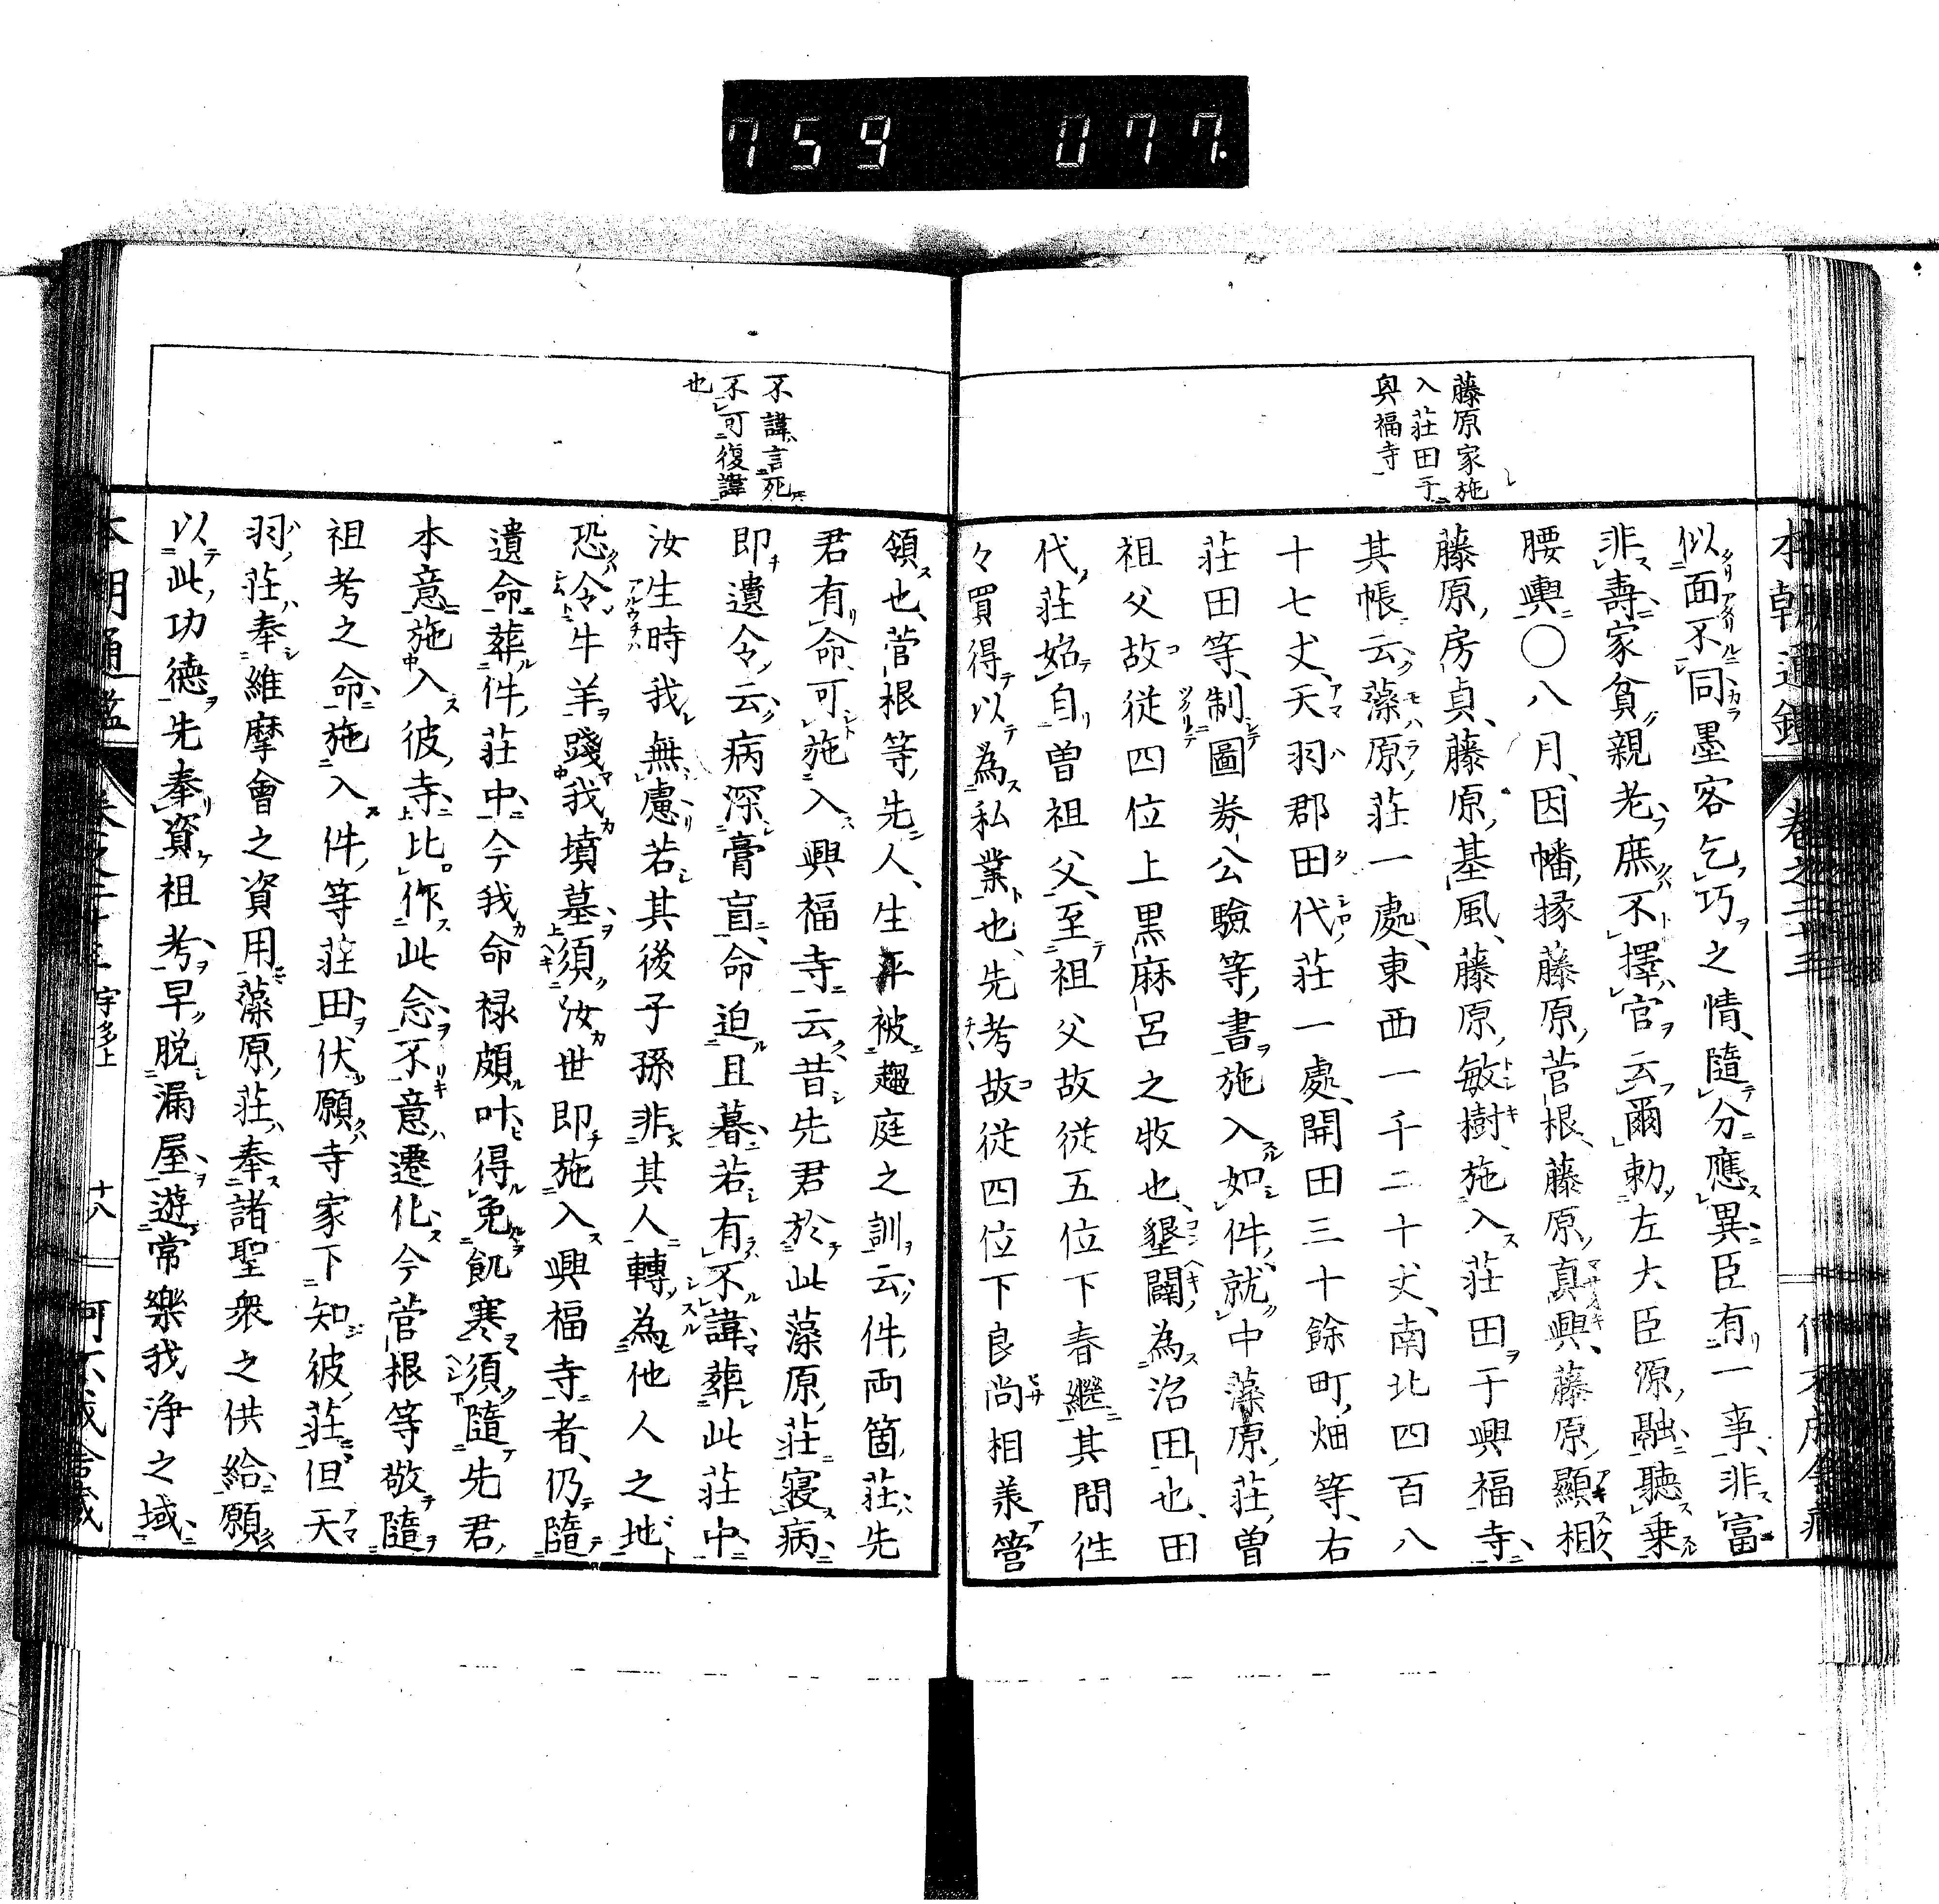 759 077.
藤原家施
入莊田于
興福寺
本朝通鑑 卷之二十三
似面不同墨客乞巧之情、隨分應異臣有一事、非富
非壽家貧親老庶不擇官云爾勅左大臣源融聽乗
腰輿〇八月、因幡掾藤原菅根、藤原真興、藤原顯相
藤原房貞、藤原基風、藤原敏樹、施入莊田于興福寺
其帳云藻原莊一處、東西一千二十丈、南北四百八
十七丈、天羽郡田代莊一處、開田三十餘町、畑等、右
莊田等、制圖券公驗等、書施入如件、就中藻原莊、曽
祖父故従四位上黒麻呂之牧也、墾闢為治田也、田
代莊始自曽祖父、至祖父故従五位下春繼其間往
々買得以為私業也、先考故従四位下良尚相兼管
不諱言死
不可復諱
也
領也、菅根等、先人、生平被趨庭之訓云件兩箇莊先
君有命、可施入興福寺云昔先君於此藻原莊寝病
即遺令云病深膏盲命迫且暮若有不諱葬此莊中
汝生時我無慮若其後子孫非其人轉為他人之地
恐令牛羊踐我墳墓須汝世即施入興福寺者、仍隨
遺命葬件莊中今我命禄頗叶得免飢寒須隨先君
本意施入彼寺比作此念不意遷化今菅根等敬隨
祖考之命施入件等莊田伏願寺家下知彼莊但天
羽莊奉維摩會之資用藻原莊奉諸聖衆之供給願
以此功德先奉資祖考早脱漏屋遊常樂我浄之域
本朝通鑑 卷之二十三 宇多上 十八